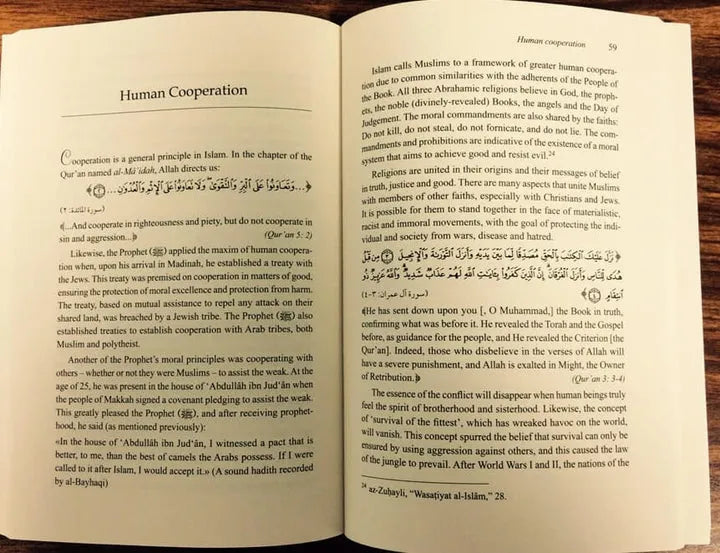 Human Cooperation
Cooperation is a general principle in Islam. In the chapter of the
Qur'an named al-Mâ'idah, Allah directs us:
﴿...وَتَعَاوَنُوا عَلَى الْبِرِّ وَالتَّقْوَىٰ وَلَا تَعَاوَنُوا عَلَى الْإِثْمِ وَالْعُدْوَانِ... ۝٢﴾
(سورة المائدة: ٢)
﴾...And cooperate in righteousness and piety, but do not cooperate in
sin and aggression...﴿ (Qur'an 5: 2)
Likewise, the Prophet (ﷺ) applied the maxim of human coopera-
tion when, upon his arrival in Madinah, he established a treaty with
the Jews. This treaty was premised on cooperation in matters of good,
ensuring the protection of moral excellence and protection from harm.
The treaty, based on mutual assistance to repel any attack on their
shared land, was breached by a Jewish tribe. The Prophet (ﷺ) also
established treaties to establish cooperation with Arab tribes, both
Muslim and polytheist.
Another of the Prophet's moral principles was cooperating with
others – whether or not they were Muslims – to assist the weak. At the
age of 25, he was present in the house of 'Abdullâh ibn Jud'ân when
the people of Makkah signed a covenant pledging to assist the weak.
This greatly pleased the Prophet (ﷺ), and after receiving prophet-
hood, he said (as mentioned previously):
«In the house of 'Abdullâh ibn Jud'ân, I witnessed a pact that is
better, to me, than the best of camels the Arabs possess. If I were
called to it after Islam, I would accept it.» (A sound hadith recorded
by al-Bayhaqi)
Human cooperation 59
Islam calls Muslims to a framework of greater human coopera-
tion due to common similarities with the adherents of the People of
the Book. All three Abrahamic religions believe in God, the proph-
ets, the noble (divinely-revealed) Books, the angels and the Day of
Judgement. The moral commandments are also shared by the faiths:
Do not kill, do not steal, do not fornicate, and do not lie. The com-
mandments and prohibitions are indicative of the existence of a moral
system that aims to achieve good and resist evil.²⁴
Religions are united in their origins and their messages of belief
in truth, justice and good. There are many aspects that unite Muslims
with members of other faiths, especially with Christians and Jews.
It is possible for them to stand together in the face of materialistic,
racist and immoral movements, with the goal of protecting the indi-
vidual and society from wars, disease and hatred.
﴿نَزَّلَ عَلَيْكَ الْكِتَٰبَ بِالْحَقِّ مُصَدِّقًا لِمَا بَيْنَ يَدَيْهِ وَأَنزَلَ التَّوْرَىٰةَ وَالْإِنجِيلَ ۝٣ مِن قَبْلُ
هُدًى لِّلنَّاسِ وَأَنزَلَ الْفُرْقَانَ إِنَّ الَّذِينَ كَفَرُوا بِـَٔايَٰتِ اللَّهِ لَهُمْ عَذَابٌ شَدِيدٌ وَاللَّهُ عَزِيزٌ ذُو
انتِقَامٍ ۝٤﴾ (سورة آل عمران: ٣-٤)
﴾He has sent down upon you [, O Muhammad,] the Book in truth,
confirming what was before it. He revealed the Torah and the Gospel
before, as guidance for the people, and He revealed the Criterion [the
Qur'an]. Indeed, those who disbelieve in the verses of Allah will
have a severe punishment, and Allah is exalted in Might, the Owner
of Retribution.﴿ (Qur'an 3: 3-4)
The essence of the conflict will disappear when human beings truly
feel the spirit of brotherhood and sisterhood. Likewise, the concept
of 'survival of the fittest', which has wreaked havoc on the world,
will vanish. This concept spurred the belief that survival can only be
ensured by using aggression against others, and this caused the law
of the jungle to prevail. After World Wars I and II, the nations of the
²⁴ az-Zuḥayli, "Wasaṭiyat al-Islâm," 28.